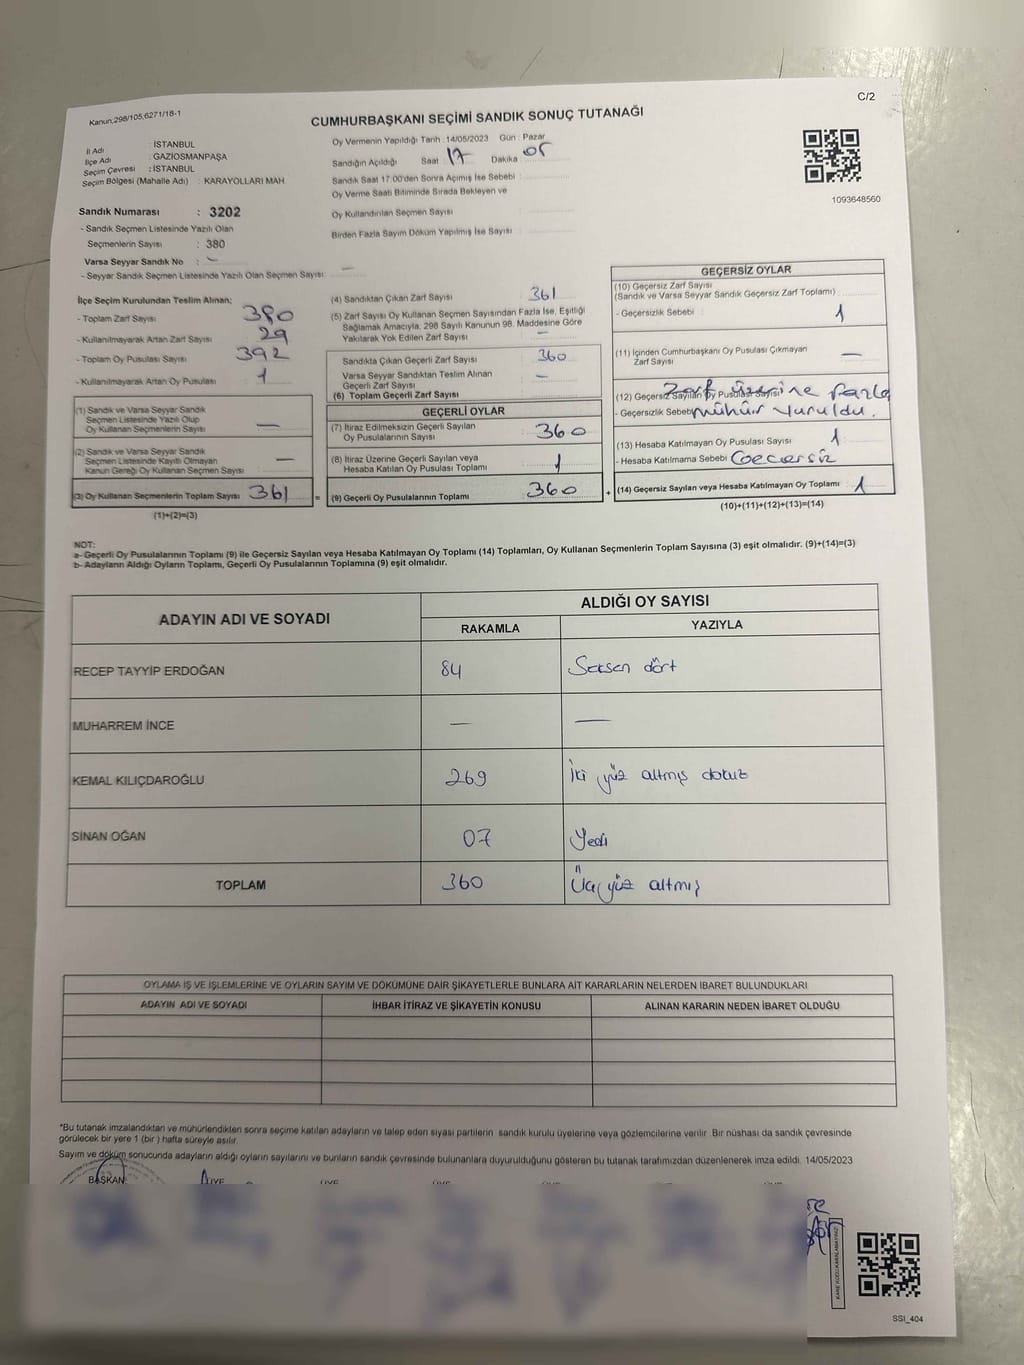 C/2
Kanun:298/105,6271/18-1
CUMHURBAŞKANI SEÇİMİ SANDIK SONUÇ TUTANAĞI
İl Adı : İSTANBUL
İlçe Adı : GAZİOSMANPAŞA
Seçim Çevresi : İSTANBUL
Seçim Bölgesi (Mahalle Adı) : KARAYOLLARI MAH.
Oy Vermenin Yapıldığı Tarih : 14/05/2023 Gün : Pazar
Sandığın Açıldığı Saat 17 Dakika 05
Sandık Saat 17:00'den Sonra Açımış İse Sebebi :
Oy Verme Saati Bitiminde Sırada Bekleyen ve
Oy Kullandırılan Seçmen Sayısı :
Birden Fazla Sayım Döküm Yapılmış İse Sayısı :
1093648560
Sandık Numarası : 3202
- Sandık Seçmen Listesinde Yazılı Olan
Seçmenlerin Sayısı : 380
Varsa Seyyar Sandık No : -
- Seyyar Sandık Seçmen Listesinde Yazılı Olan Seçmen Sayısı: —
İlçe Seçim Kurulundan Teslim Alınan;
- Toplam Zarf Sayısı 390
- Kullanılmayarak Artan Zarf Sayısı 29
- Toplam Oy Pusulası Sayısı 392
- Kullanılmayarak Artan Oy Pusulası 1
(1) Sandık ve Varsa Seyyar Sandık
Seçmen Listesinde Yazılı Olup
Oy Kullanan Seçmenlerin Sayısı : —
(2) Sandık ve Varsa Seyyar Sandık
Seçmen Listesinde Kayıtlı Olmayan
Kanun Gereği Oy Kullanan Seçmen Sayısı : —
(3) Oy Kullanan Seçmenlerin Toplam Sayısı 361 =
(1)+(2)=(3)
(4) Sandıktan Çıkan Zarf Sayısı 361
(5) Zarf Sayısı Oy Kullanan Seçmen Sayısından Fazla İse, Eşitliği
Sağlamak Amacıyla, 298 Sayılı Kanunun 98. Maddesine Göre
Yakılarak Yok Edilen Zarf Sayısı —
Sandıkta Çıkan Geçerli Zarf Sayısı 360
Varsa Seyyar Sandıktan Teslim Alınan
Geçerli Zarf Sayısı —
(6) Toplam Geçerli Zarf Sayısı
GEÇERLİ OYLAR
(7) İtiraz Edilmeksizin Geçerli Sayılan
Oy Pusulalarının Sayısı 360
(8) İtiraz Üzerine Geçerli Sayılan veya
Hesaba Katılan Oy Pusulası Toplamı 1
(9) Geçerli Oy Pusulalarının Toplamı 360 +
GEÇERSİZ OYLAR
(10) Geçersiz Zarf Sayısı
(Sandık ve Varsa Seyyar Sandık Geçersiz Zarf Toplamı)
- Geçersizlik Sebebi : 1
(11) İçinden Cumhurbaşkanı Oy Pusulası Çıkmayan
Zarf Sayısı —
(12) Geçersiz Sayılan Oy Pusulası Sayısı Zarf üzerine fazla
- Geçersizlik Sebebi mühür vuruldu.
(13) Hesaba Katılmayan Oy Pusulası Sayısı 1
- Hesaba Katılmama Sebebi Gecersiz
(14) Geçersiz Sayılan veya Hesaba Katılmayan Oy Toplamı : 1
(10)+(11)+(12)+(13)=(14)
NOT:
a- Geçerli Oy Pusulalarının Toplamı (9) ile Geçersiz Sayılan veya Hesaba Katılmayan Oy Toplamı (14) Toplamları, Oy Kullanan Seçmenlerin Toplam Sayısına (3) eşit olmalıdır. (9)+(14)=(3)
b- Adayların Aldığı Oyların Toplamı, Geçerli Oy Pusulalarının Toplamına (9) eşit olmalıdır.
ADAYIN ADI VE SOYADI
ALDIĞI OY SAYISI
RAKAMLA YAZIYLA
RECEP TAYYİP ERDOĞAN 84 Seksen dört
MUHARREM İNCE — —
KEMAL KILIÇDAROĞLU 269 İki yüz altmış dokuz
SİNAN OĞAN 07 Yedi
TOPLAM 360 Üç yüz altmış
OYLAMA İŞ VE İŞLEMLERİNE VE OYLARIN SAYIM VE DÖKÜMÜNE DAİR ŞİKAYETLERLE BUNLARA AİT KARARLARIN NELERDEN İBARET BULUNDUKLARI
ADAYIN ADI VE SOYADI İHBAR İTİRAZ VE ŞİKAYETİN KONUSU ALINAN KARARIN NEDEN İBARET OLDUĞU
*Bu tutanak imzalandıktan ve mühürlendikten sonra seçime katılan adayların ve talep eden siyasi partilerin sandık kurulu üyelerine veya gözlemcilerine verilir. Bir nüshası da sandık çevresinde
görülecek bir yere 1 (bir ) hafta süreyle asılır.
Sayım ve döküm sonucunda adayların aldığı oyların sayılarını ve bunların sandık çevresinde bulunanlara duyurulduğunu gösteren bu tutanak tarafımızdan düzenlenerek imza edildi. 14/05/2023
BAŞKAN ÜYE
SSI_404